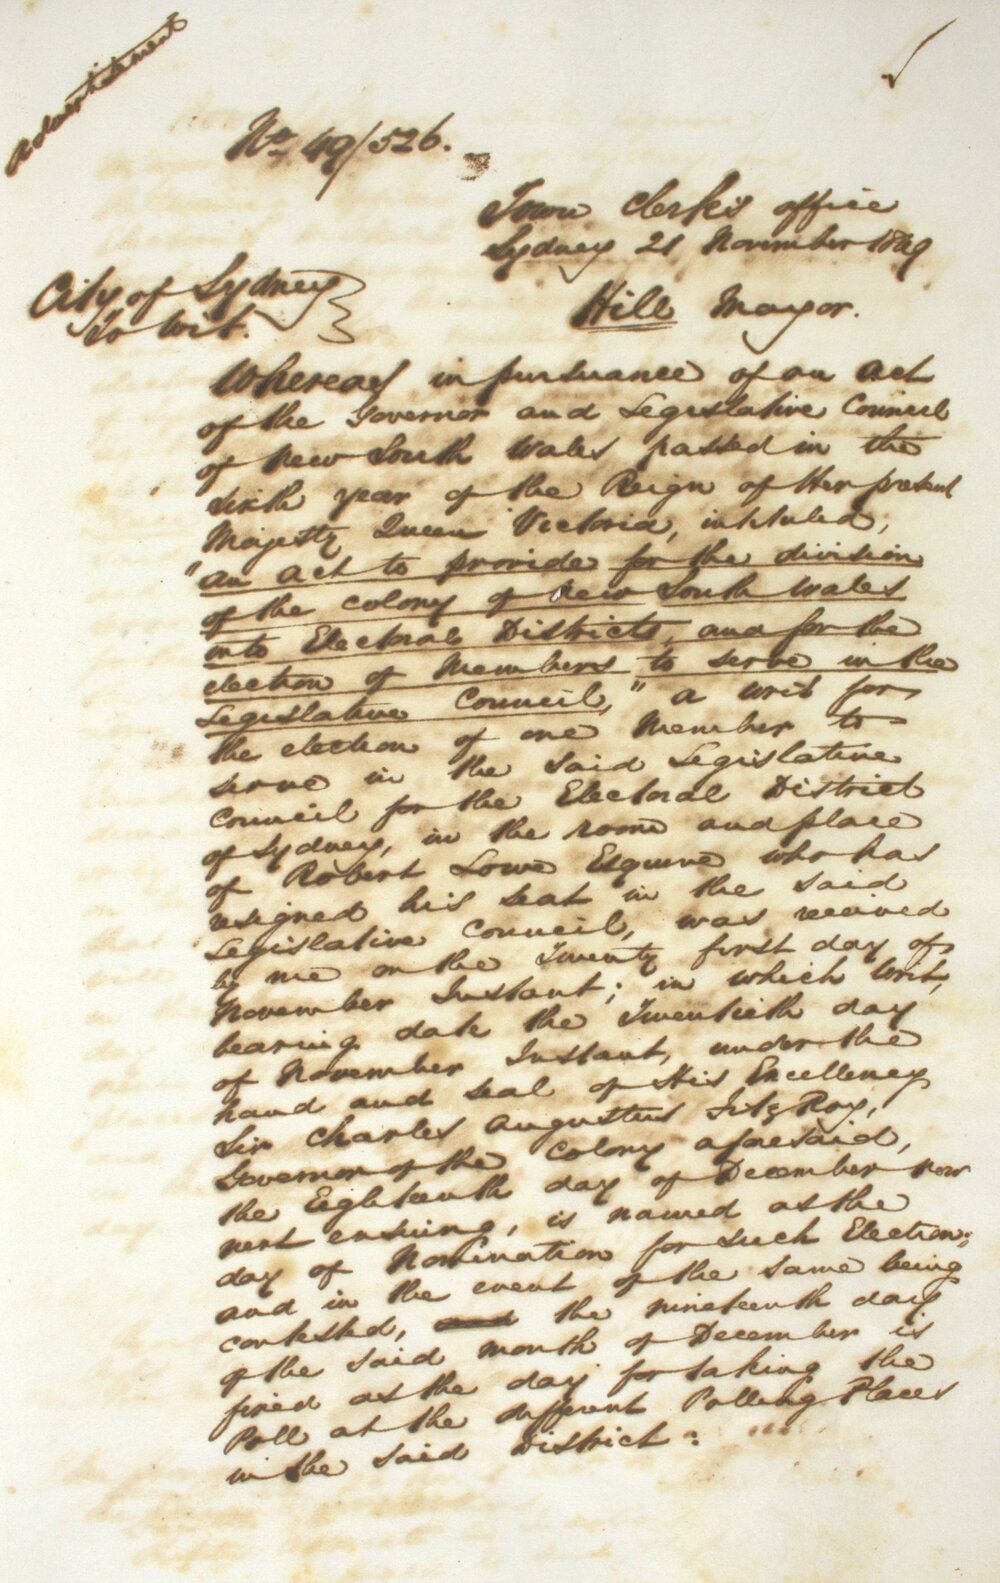 Advertisement
No. 49/526.
Town Clerk's office
Sydney 21 November 1849
City of Sydney
To Wit.
Hill Mayor.
Whereas in pursuance of an Act
of the Governor and Legislative Council
of New South Wales passed in the
sixth year of the Reign of Her present
Majesty Queen Victoria, intituled,
"An Act to provide for the division
of the Colony of New South Wales
into Electoral Districts, and for the
election of Members to serve in the
Legislative Council," a writ for
the election of one Member to
serve in the said Legislative
Council for the Electoral District
of Sydney, in the room and place
of Robert Lowe Esquire who has
resigned his seat in the said
Legislative Council, was received
by me on the Twenty first day of
November Instant; in which Writ,
bearing date the Twentieth day
of November Instant, under the
hand and seal of His Excellency
Sir Charles Augustus Fitz Roy,
Governor of the Colony aforesaid,
the Eighteenth day of December now
next ensuing, is named as the
day of Nomination for such Election;
and in the event of the same being
contested, the nineteenth day
of the said month of December is
fixed as the day for taking the
Poll at the different Polling Places
in the said District: